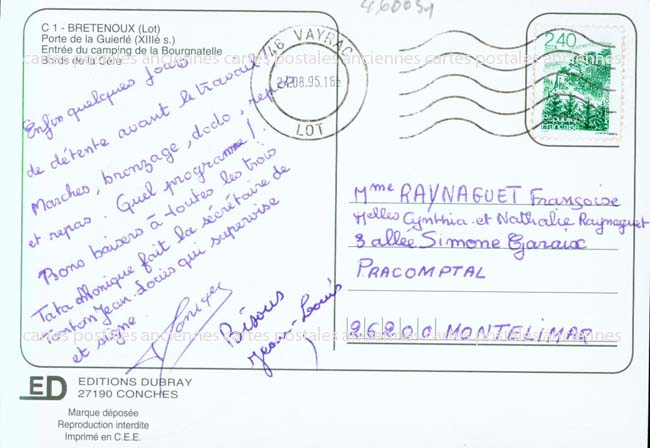 460051
C 1 - BRETENOUX (Lot)
Porte de la Guierlé (XIIIe s.)
Entrée du camping de la Bourgnatelle
Bords de la Cère
46 VAYRAC
24.08.95.16
LOT
2,40
Enfin quelques jours
de détente avant le travail!
Marches, bronzage, dodo, repos
et repas. Quel programme!
Bons baisers à toutes les trois
Tata Monique fait la sécrétaire de
Tonton Jean-Louis qui supervise
et signe.
Monique
Bisous
Jean-Louis
Mme RAYNAGUET Françoise
Melles Cynthia et Nathalie Raynaguet
3 allée Simone Garaix
PRACOMPTAL
26200 MONTELIMAR
cartes postales anciennes cartes postales anciennes cartes postales anciennes
cartes postales anciennes cartes postales anciennes cartes postales anciennes
ED
EDITIONS DUBRAY
27190 CONCHES
Marque déposée
Reproduction interdite
Imprimé en C.E.E.